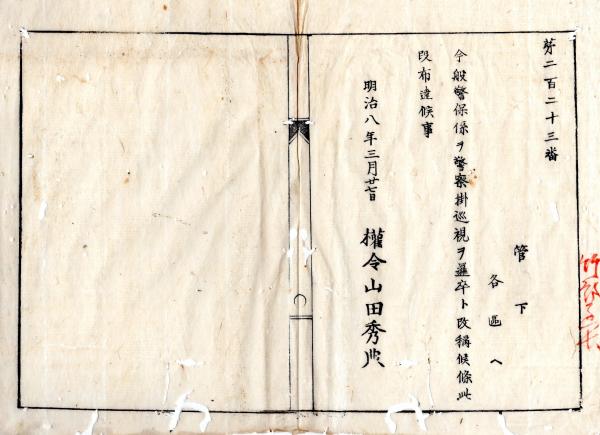 第二百二十三番
管下
各區へ
今般警保係ヲ警察掛巡視ヲ邏卒ト改稱候條此
段布達候事
明治八年三月廿七日
權令山田秀典